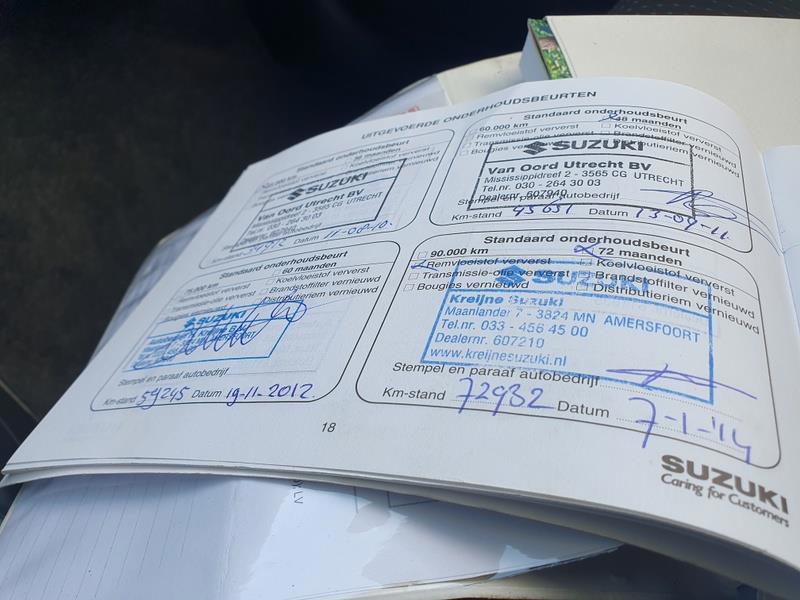 UITGEVOERDE ONDERHOUDSBEURTEN
Standaard onderhoudsbeurt
36 maanden
Koelvloeistof ververst
Brandstoffilter vernieuwd
Distributieriem vernieuwd
SUZUKI
Van Oord Utrecht BV
Mississippidreef 2 - 3565 CG UTRECHT
Tel.nr. 030 - 264 30 03
Km-stand Datum 11-08-10.
Standaard onderhoudsbeurt
60.000 km 48 maanden
Remvloeistof ververst Koelvloeistof ververst
Transmissie-olie ververst
Bougies vernieuwd Distributieriem vernieuwd
SUZUKI
Van Oord Utrecht BV
Mississippidreef 2 - 3565 CG UTRECHT
Tel.nr. 030 - 264 30 03
Dealernr. 607940
Stempel en paraaf autobedrijf
Km-stand 45651 Datum 13-09-11
Standaard onderhoudsbeurt
75.000 km 60 maanden
Remvloeistof ververst Koelvloeistof ververst
Transmissie-olie ververst Brandstoffilter vernieuwd
Bougies vernieuwd Distributieriem vernieuwd
SUZUKI
Stempel en paraaf autobedrijf
Km-stand 59245 Datum 19-11-2012.
Standaard onderhoudsbeurt
90.000 km 72 maanden
Remvloeistof ververst Koelvloeistof ververst
Transmissie-olie ververst Brandstoffilter vernieuwd
Bougies vernieuwd Distributieriem vernieuwd
SUZUKI
Kreijne Suzuki
Maanlander 7 - 3824 MN AMERSFOORT
Tel.nr. 033 - 456 45 00
Dealernr. 607210
www.kreijnesuzuki.nl
Stempel en paraaf autobedrijf
Km-stand 72982 Datum 7-1-'14
18
SUZUKI
Caring for Customers